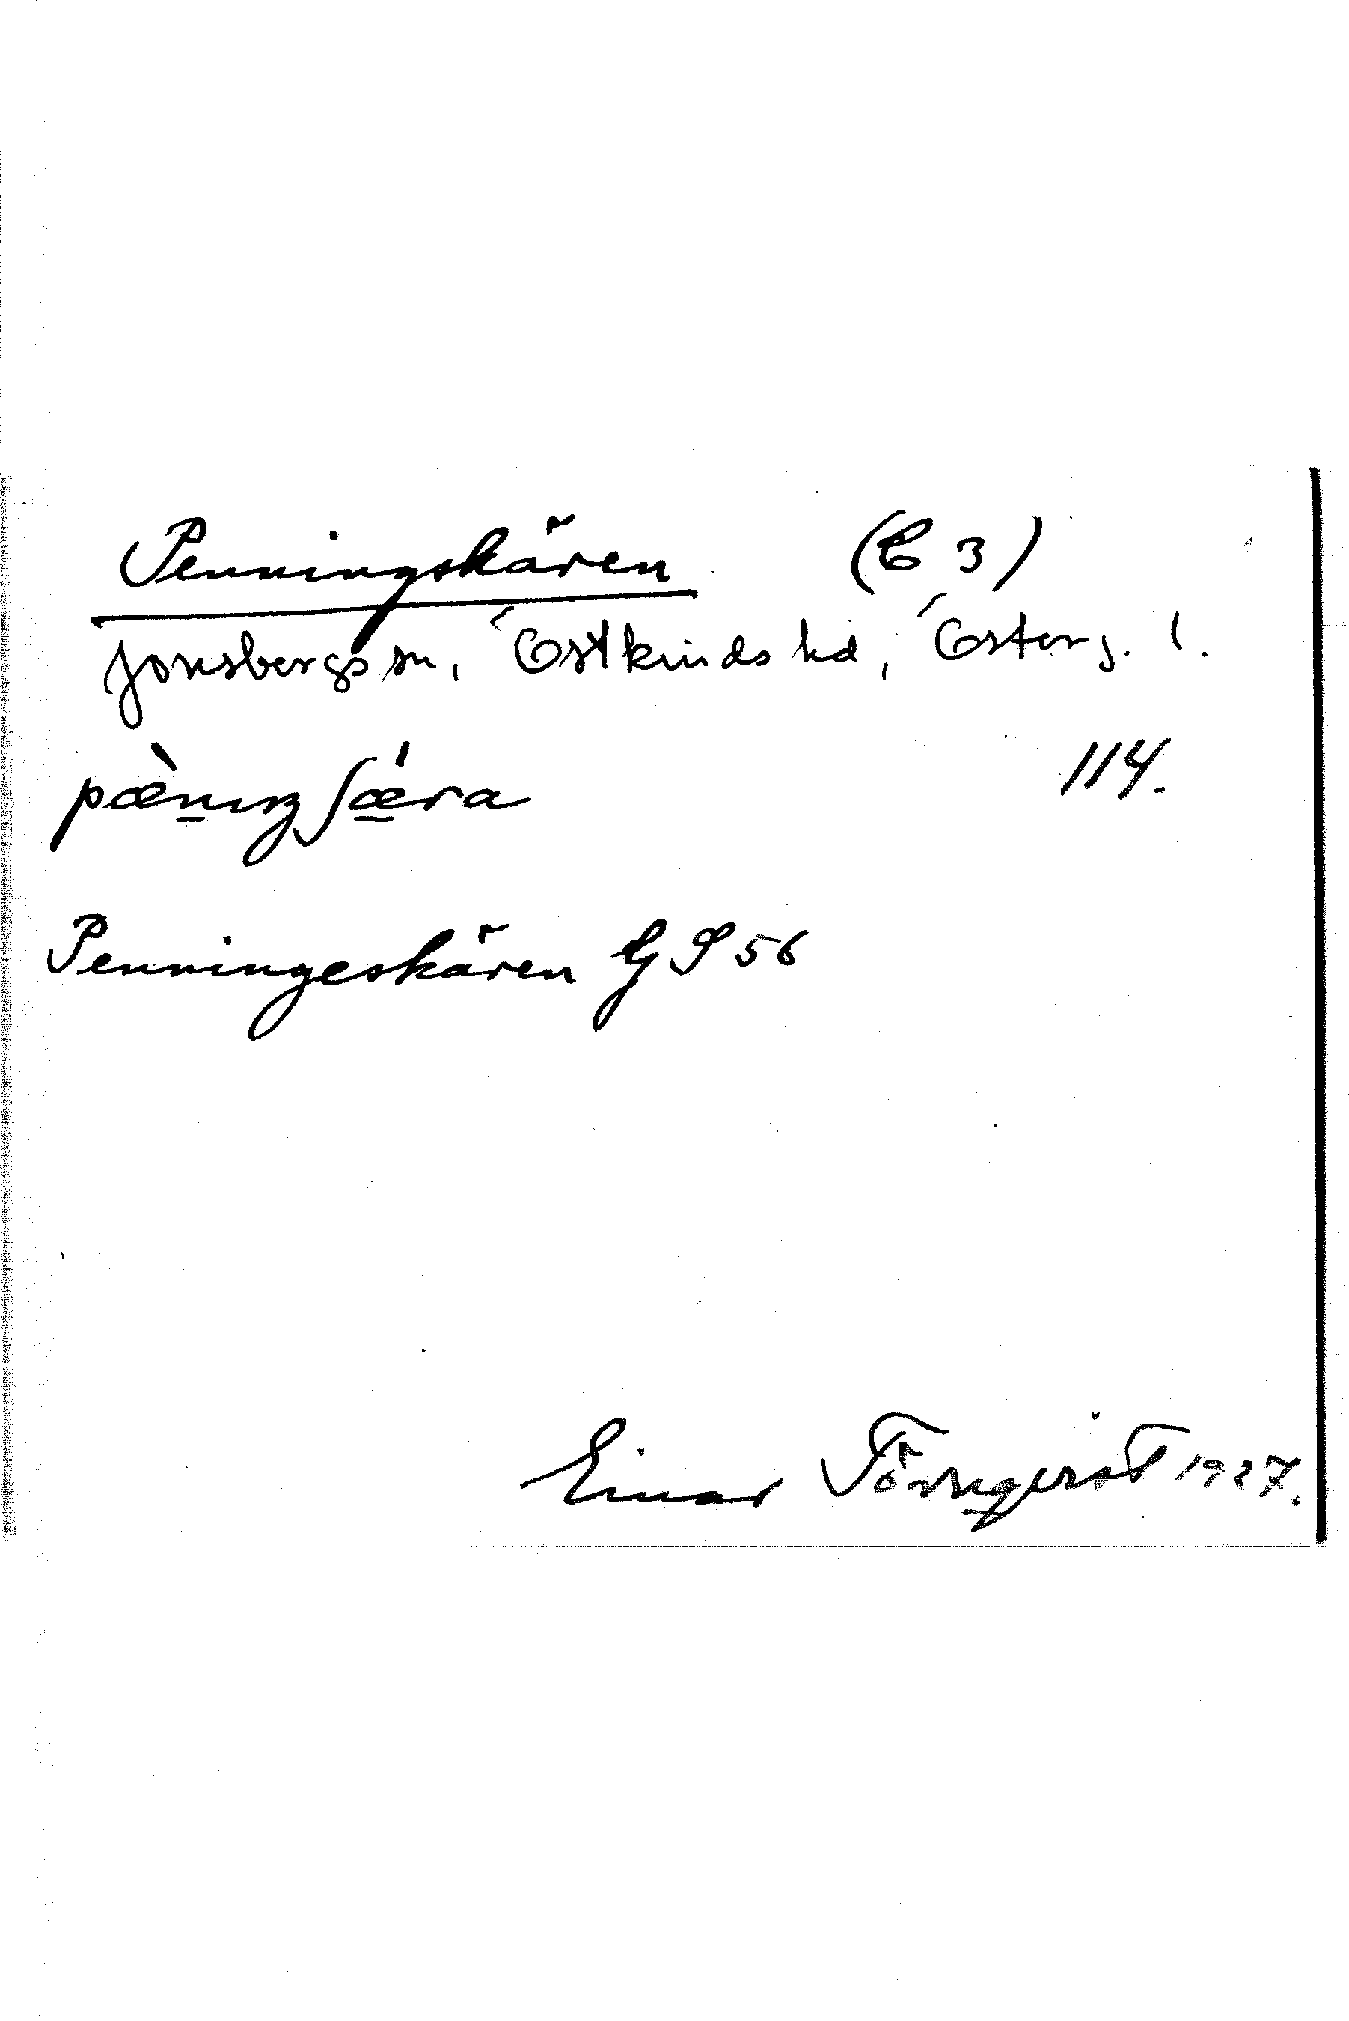 Penningskären (C 3)
Jonsbergs sn, Östkinds hd, Österg. l.
pæ̀niŋʃǽra 114.
Penningeskären GS 56
Einar Törnqvist 1927.